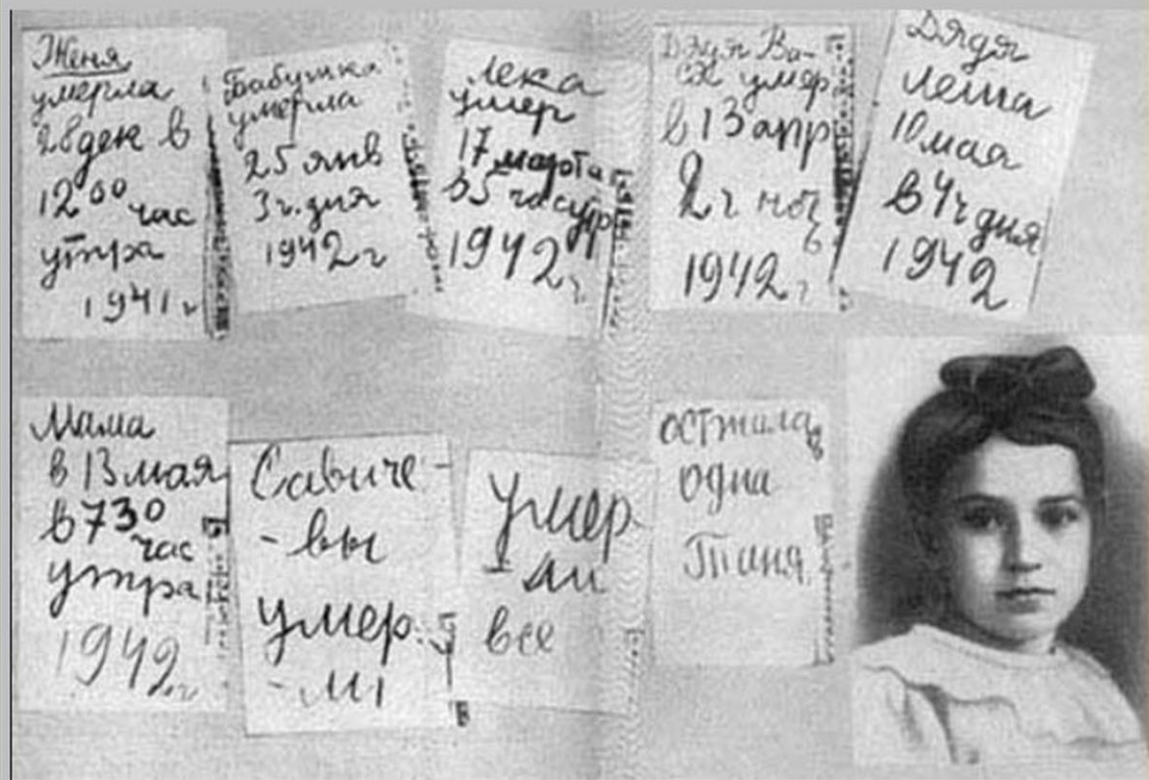 Женя
умерла
28 дек в
12 00 час
утра
1941 г
Бабушка
умерла
25 янв
3 ч. дня
1942 г
Лека
умер
17 марта
в 5 час утр
1942 г.
Дядя Ва-
ся умер
в 13 апр
2 ч ноч
ь
1942 г
Дядя
Леша
10 мая
в 4 ч дня
1942
Мама
в 13 мая
в 7 30
час
утра
1942 г
Савиче-
- вы
умер.
- ли
Умер
- ли
все
осталась
одна
Таня.